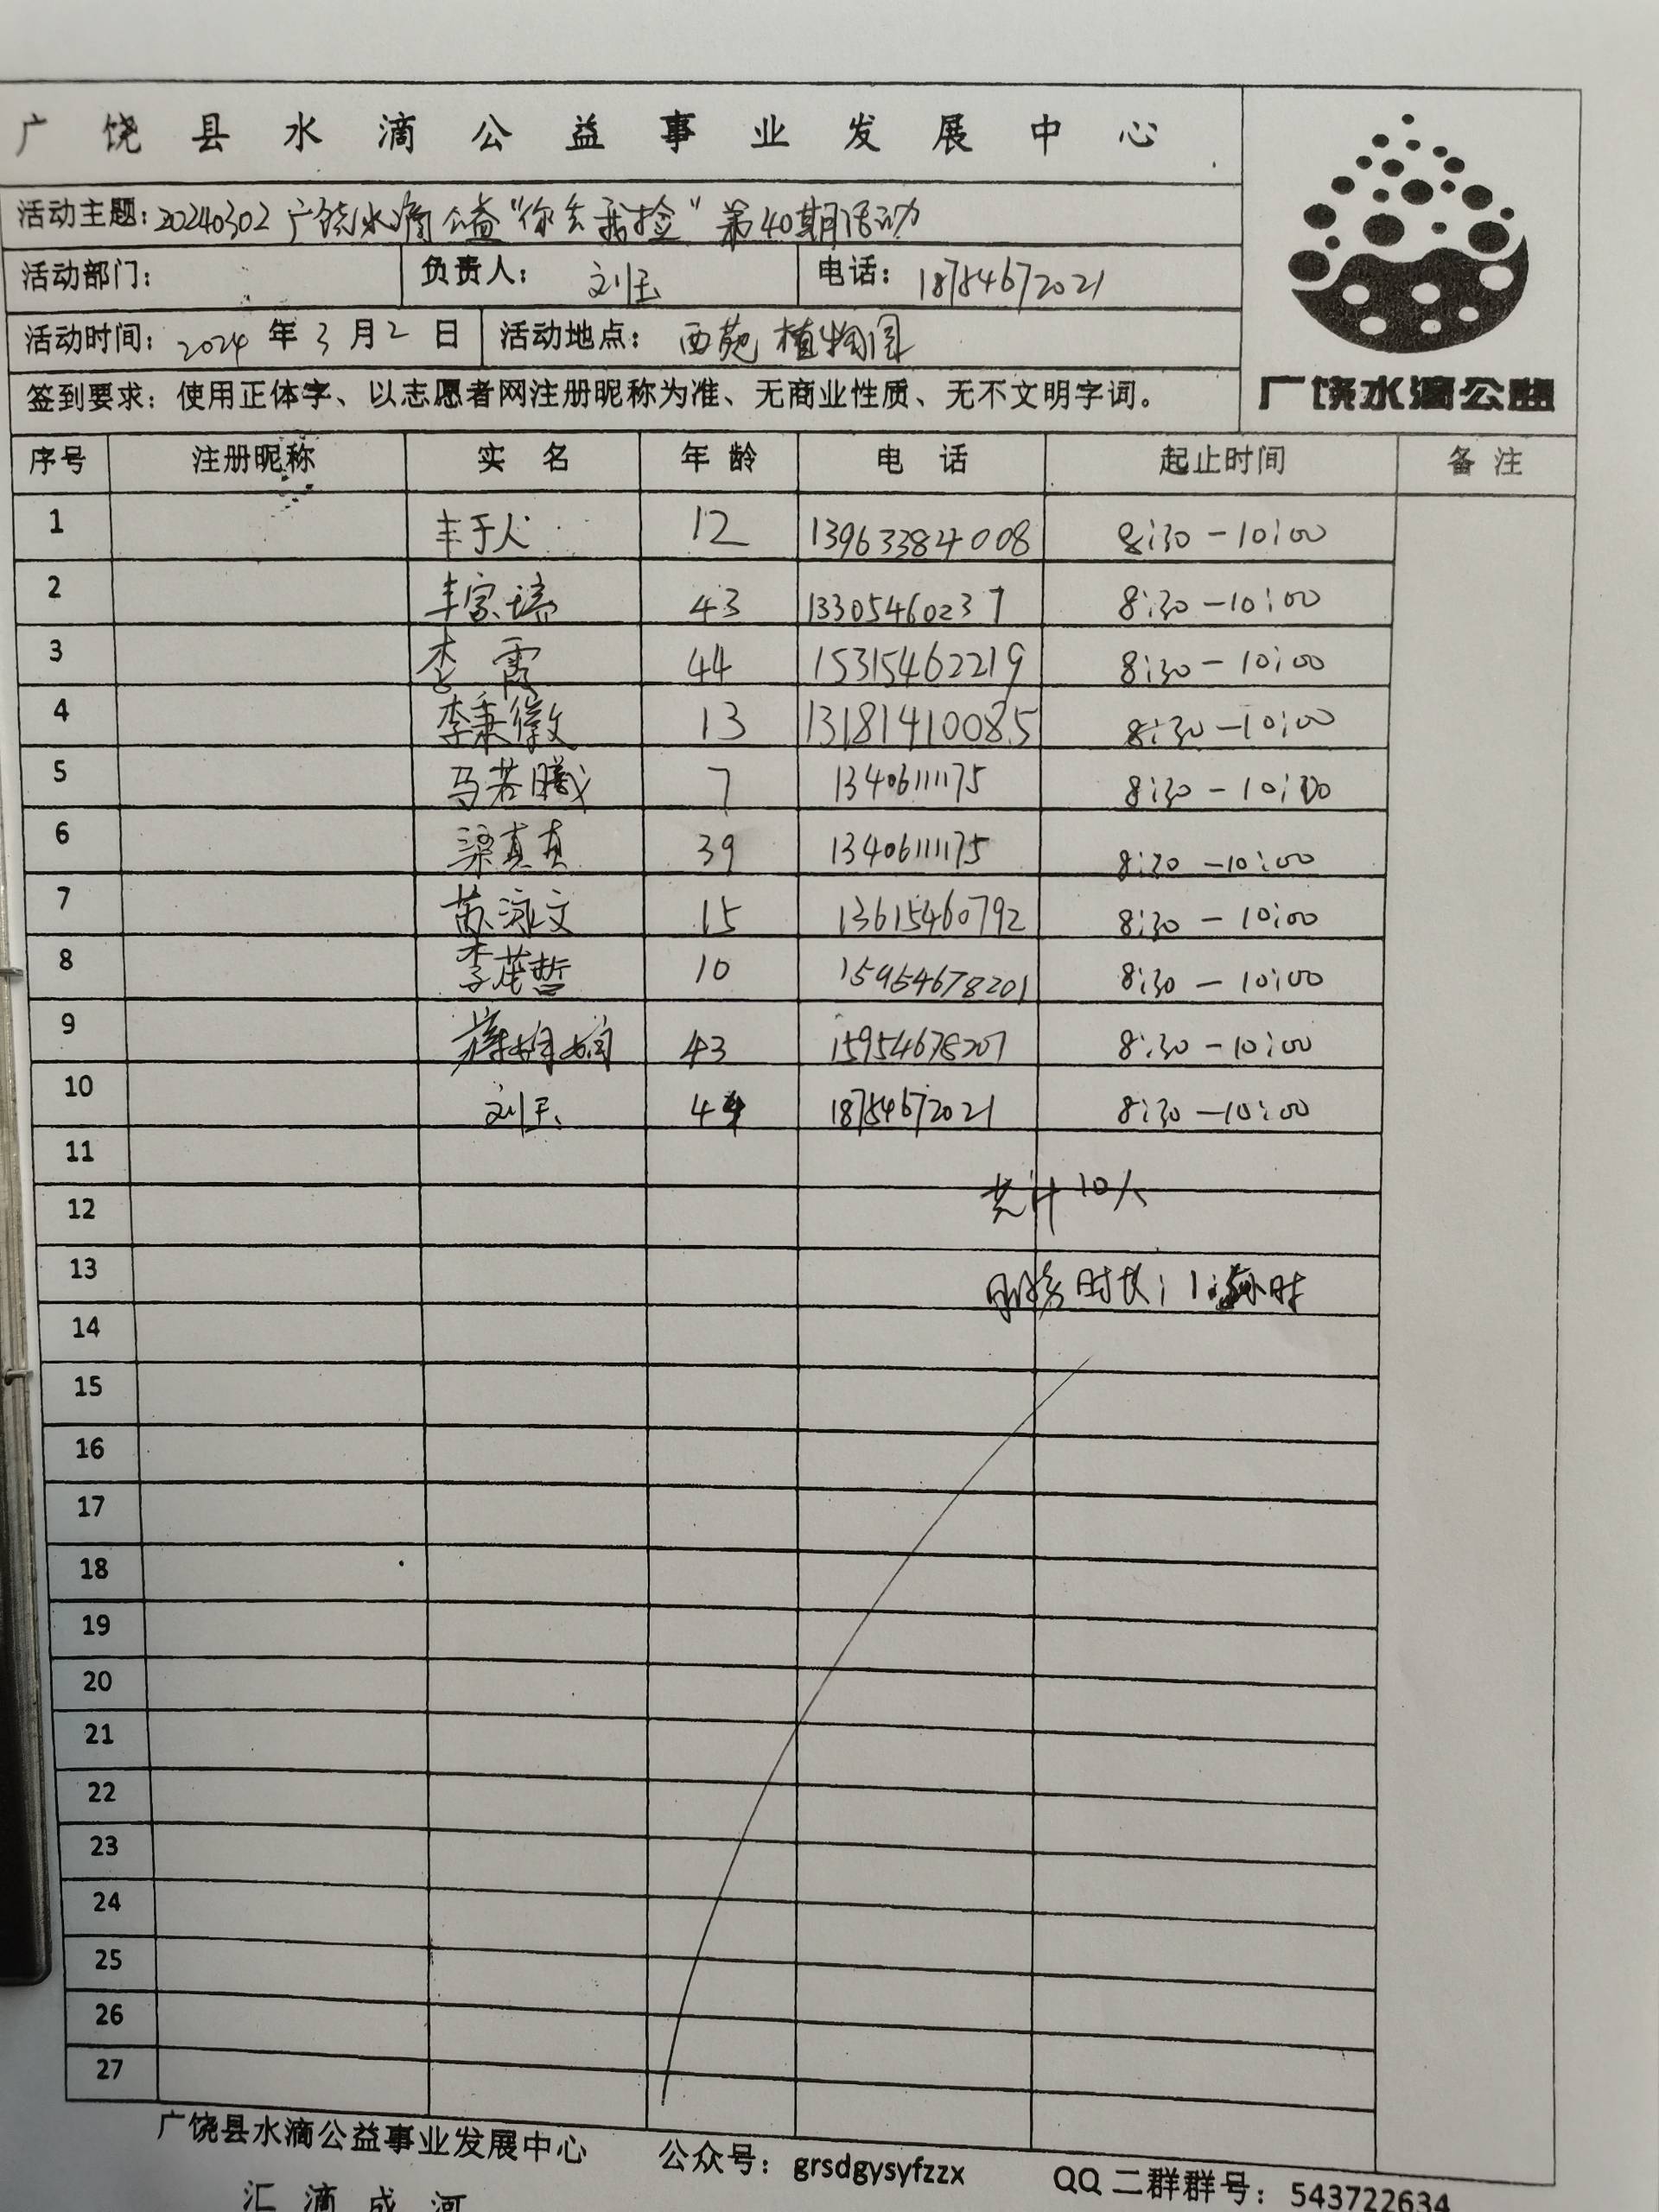 广饶县水滴公益事业发展中心
活动主题：20240302广饶水滴公益“你丢我捡”第40期活动
活动部门： 负责人：刘玉 电话：18754672021
活动时间：2024年3月2日 活动地点：西苑植物园
签到要求：使用正体字、以志愿者网注册昵称为准、无商业性质、无不文明字词。
广饶水滴公益
序号 注册昵称 实名 年龄 电话 起止时间 备注
1 丰于人 12 13963384008 8:30－10:00
2 丰家 43 13305460237 8:30－10:00
3 李霞 44 15315462219 8:30－10:00
4 李秉徽 13 13181410085 8:30－10:00
5 马若曦 7 13406111175 8:30－10:00
6 梁真真 39 13406111175 8:30－10:00
7 苏泳文 15 13615460792 8:30－10:00
8 李茂哲 10 15954678201 8:30－10:00
9 43 15954678201 8:30－10:00
10 刘玉 44 18754672021 8:30－10:00
11
共计10人
12
13 服务时长：1.5小时
14
15
16
17
18
19
20
21
22
23
24
25
26
27
广饶县水滴公益事业发展中心 公众号：grsdgysyfzzx QQ二群群号：543722634
汇滴成河